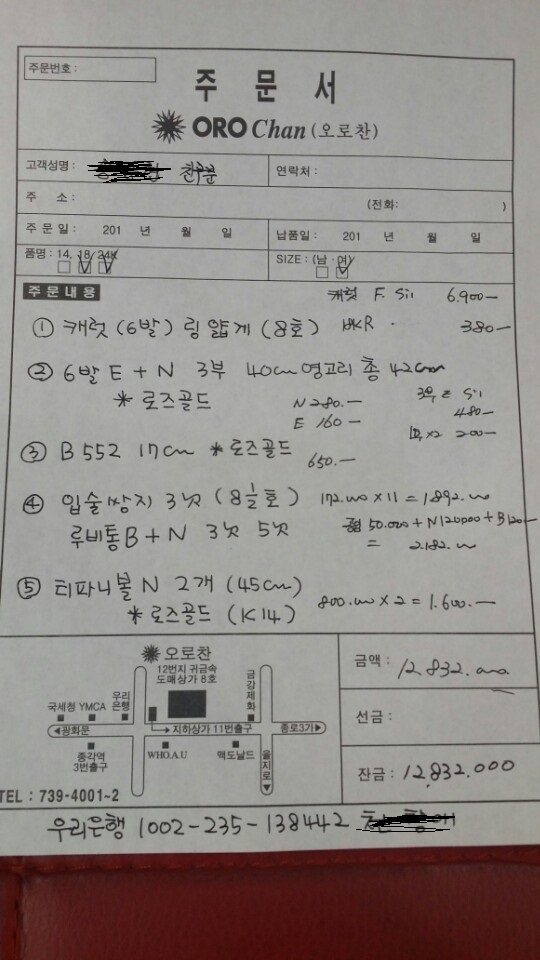 주문번호 :
주 문 서
ORO Chan (오로찬)
고객성명 : 친구분 연락처 :
주 소 : (전화: )
주 문 일 : 201 년 월 일 납품일 : 201 년 월 일
품명 : 14, 18, 24K SIZE : (남 · 여)
주 문 내 용
캐럿 F. Si1 6.900-
① 캐럿 (6발) 링 얇게 (8호) 380-
② 6발 E + N 3부 40cm 영고리 총 42cm
* 로즈골드
N 280.-
E 160-
3부 Si1
480-
x2 200-
③ B 552 17cm * 로즈골드 650.-
④ 입술쌍지 3닷 (8½호) 172.000 x 11 = 1.892.000
루비통 B + N 3닷 5닷
50.000 + N120000 + B120-
= 2.182.000
⑤ 티파니볼 N 2개 (45cm)
* 로즈골드 (K14) 800.000 x 2 = 1.600.-
오로찬
12번지 귀금속
도매상가 8호
국세청 YMCA 우리은행 금강제화
◀광화문 지하상가 11번출구 종로3가▶
종각역
3번출구
WHO.A.U 맥도날드 을지로▼
TEL : 739-4001~2
금액 : 12.832.000
선금 :
잔금 : 12.832.000
우리은행 1002-235-138442